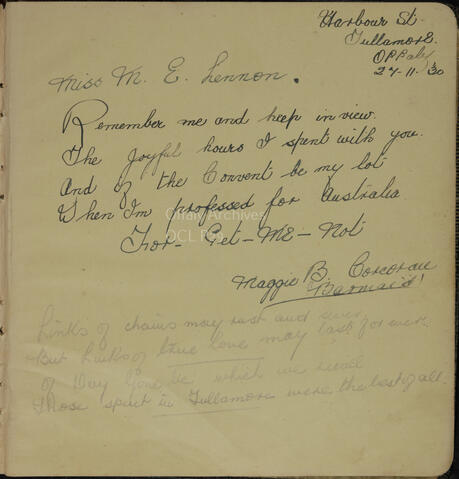 Harbour St.
Tullamore.
Offaly
27-11-30
Miss M. E. Lennon.
Remember me and keep in view
The Joyful hours I spent with you.
And if the Convent be my lot
When I'm professed for Australia
Offaly Archives
OCL P59
For-Get-Me-Not
Maggie B. Corcoran
Barmaid!
Links of chains may rust and
But links of true love may last for ever.
of Day Gone by which we recall
Those spent in Tullamore were the best of all.